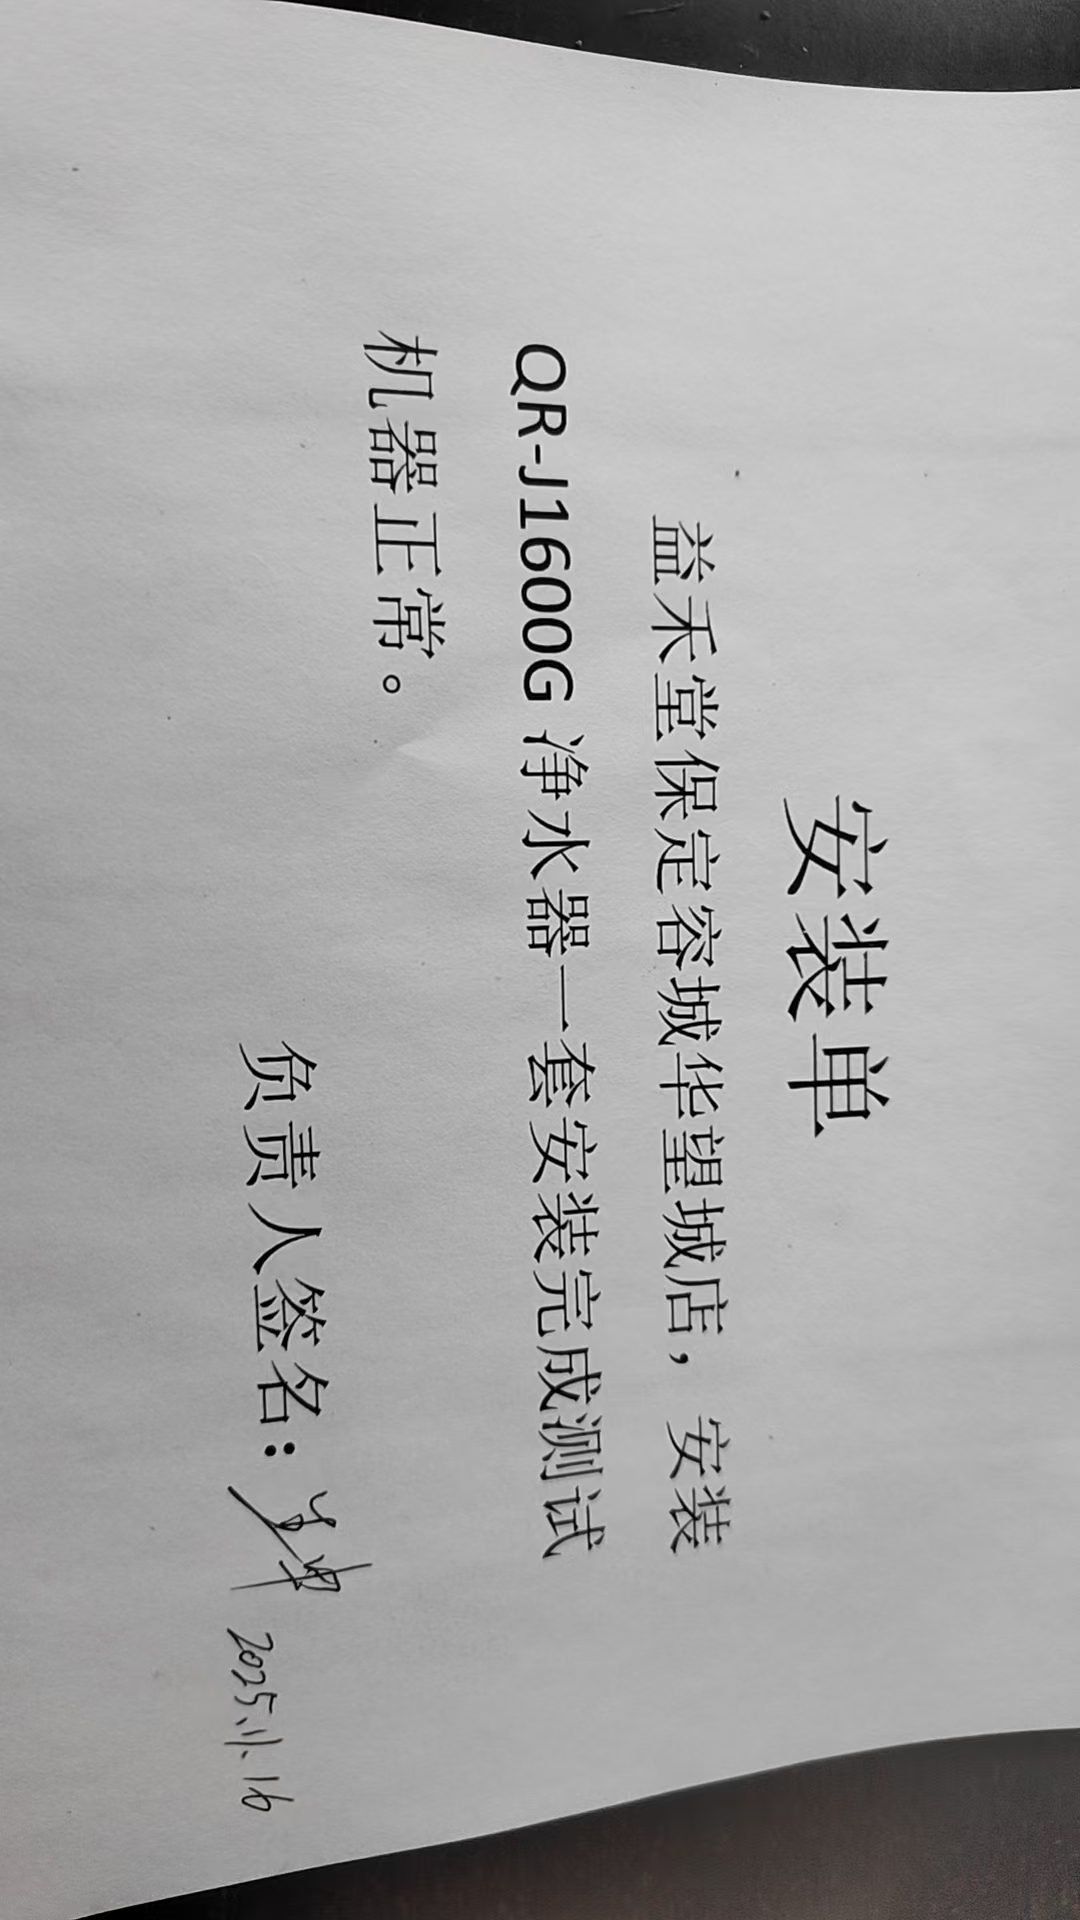 安装单
益禾堂保定容城华望城店，安装
QR-J1600G 净水器一套安装完成测试
机器正常。
负责人签名：
2025.11.16